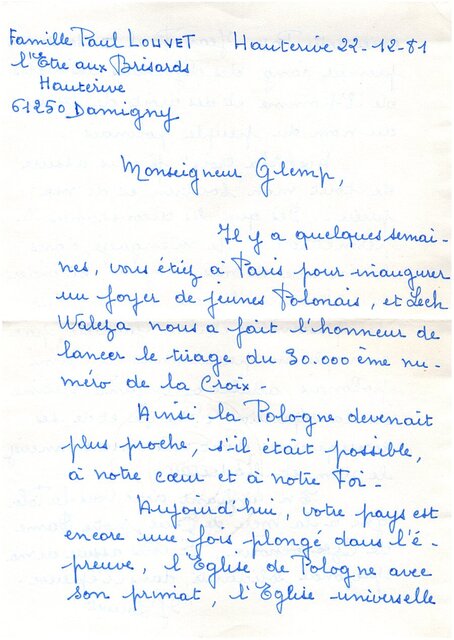 Famille Paul LOUVET Hauterive 22-12-81
l'Etre aux Brisards
Hauterive
61250 Damigny
Monseigneur Glemp,
Il y a quelques semai-
nes, vous étiez à Paris pour inaugurer
un foyer de jeunes Polonais, et Lech
Waleza nous a fait l'honneur de
lancer le tirage du 30.000 ème nu-
méro de la Croix -
Ainsi la Pologne devenait
plus proche, s'il était possible,
à notre cœur et à notre Foi -
Aujourd'hui, votre pays est
encore une fois plongé dans l'é-
preuve, l'Eglise de Pologne avec
son primat, l'Eglise universelle